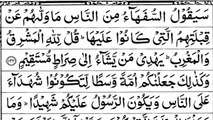 سَيَقُولُ السُّفَهَاءُ مِنَ النَّاسِ مَا وَلّٰىهُمْ عَنْ
قِبْلَتِهِمُ الَّتِيْ كَانُوْا عَلَيْهَا ؕ قُلْ لِّلّٰهِ الْمَشْرِقُ
وَالْمَغْرِبُ ؕ يَهْدِيْ مَنْ يَّشَآءُ اِلٰى صِرَاطٍ مُّسْتَقِيْمٍ ﴿۱۴۲﴾
وَكَذٰلِكَ جَعَلْنٰكُمْ اُمَّةً وَّسَطًا لِّتَكُوْنُوْا شُهَدَآءَ
عَلَى النَّاسِ وَيَكُوْنَ الرَّسُوْلُ عَلَيْكُمْ شَهِيْدًا ؕ وَمَا